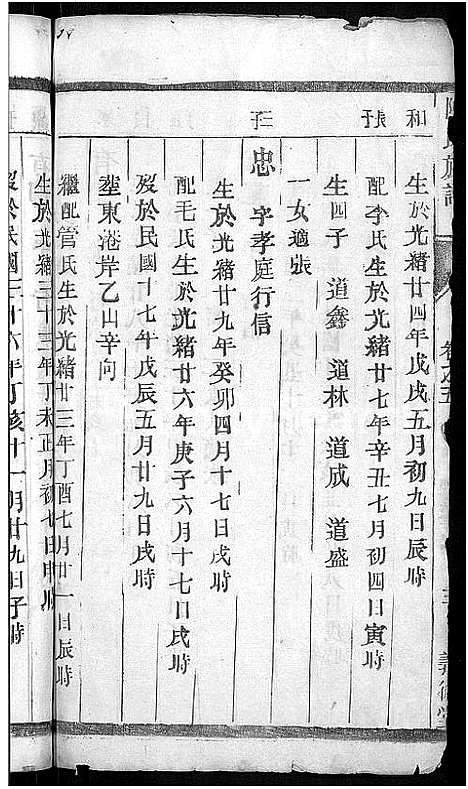 氏族譜
卷之五
和
生於光緒廿四年戊戌五月初九日辰時
配李氏生於光緒廿七年辛丑七月初四日寅時
生四子 道鑫 道林 道成 道盛
一女適張
忠 字孝庭行信
生於光緒廿九年癸卯四月十七日戌時
配毛氏生於光緒廿六年庚子六月十七日戌時
歿於民國十七年戊辰五月廿九日戌時
塟東港岸乙山辛向
繼配管氏生於光緒廿三年丁酉七月廿一日辰時
生於光緒三十三年丁未正月初七日申時
歿於民國三十六年丁亥十一月廿九日子時